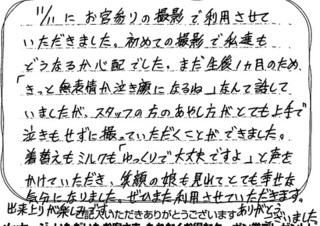 11/11 に お宮参りの撮影で利用させて
いただきました。初めての撮影で私達も
どうなるか心配でした。まだ生後1カ月のため、
「きっと無表情か泣き顔になるね」なんて話して
いましたが、スタッフの方のあやし方がとても上手で
泣きもせずに撮っていただくことができました。
着替えもミルクも「ゆっくりで大丈夫ですよ」と声を
かけていただき、笑顔の娘も見れてとても幸せな
気分になりました。ぜひまた利用させていただきます。
出来上りが楽しみです。 ありがとう
ございました。
ご記入いただきありがとうございます